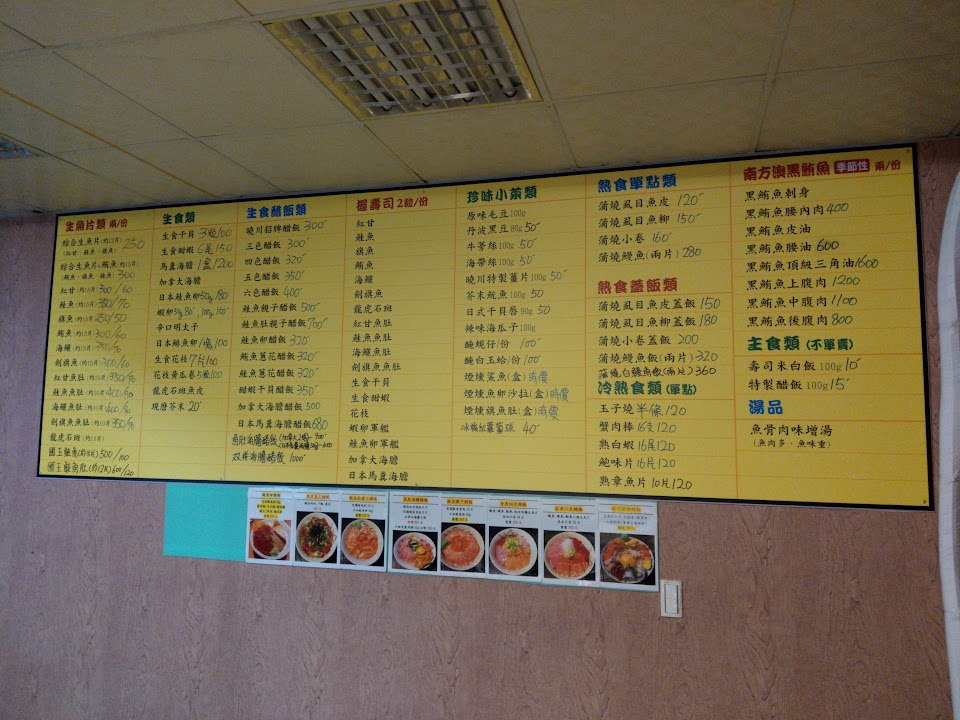 生魚片類 兩/份
綜合生魚片(約15片) 250
(紅甘、鮭魚、旗魚)
綜合生魚片+鮪魚(約15片)
(鮪魚、旗魚、鮭魚) 300
紅甘(約15片)300/60
鮭魚(約15片)350/70
旗魚(約15片)250/50
鮪魚(約15片)300/60
海鱺(約15片)350/70
劍旗魚(約15片)300/60
紅甘魚肚(約15片)350/70
鮭魚魚肚(約15片)400/80
海鱺魚肚(約15片)400/80
劍旗魚魚肚(約15片)350/70
龍虎石斑(約15片)
國王鮭魚(約15片)500/100
國王鮭魚肚(約12片)600/120
生食類
生食干貝 3粒100
生食甜蝦 6尾150
馬糞海膽 1盒1200
加拿大海膽
日本鮭魚卵50g 180
蝦卵50g 80', 100g 150'
辛口明太子
日本鯡魚卵 1塊100
生食花枝 7片100
花枝黃瓜卷5粒100
龍虎石斑魚皮
現磨芥末 20'
生食醋飯類
曉川招牌醋飯 300'
三色醋飯 300'
四色醋飯 320'
五色醋飯 350'
六色醋飯 400'
鮭魚親子醋飯 500'
鮭魚肚親子醋飯 700'
鮭魚卵醋飯 320'
鮪魚蔥花醋飯 320'
甜蝦干貝醋飯 350'
加拿大海膽醋飯 500
日本馬糞海膽醋飯 680
雙拼海膽醋飯 1000'
握壽司 2粒/份
紅甘
鮭魚
旗魚
鮪魚
海鱺
劍旗魚
龍虎石斑
紅甘魚肚
鮭魚魚肚
海鱺魚肚
劍旗魚魚肚
生食干貝
生食甜蝦
花枝
蝦卵軍艦
鮭魚卵軍艦
加拿大海膽
日本馬糞海膽
珍味小菜類
原味毛豆100g
丹波黑豆80g 50'
牛蒡絲100g 50'
海帶絲100g 50'
曉川特製薑片100g 50'
芥末魷魚100g 50'
日式干貝唇90g 50
辣味海瓜子100g
醃蜆仔/份 100'
醃白玉蛤/份 100'
煙燻鯊魚(盒)時價
煙燻魚卵沙拉(盒)時價
煙燻旗魚肚(盒)時價
冰梅紅蘿蔔球 40'
熟食單點類
蒲燒虱目魚皮 120'
蒲燒虱目魚柳 150'
蒲燒小卷 160'
蒲燒鰻魚(兩片)280
熟食蓋飯類
蒲燒虱目魚皮蓋飯 150
蒲燒虱目魚柳蓋飯 180
蒲燒小卷蓋飯 200
蒲燒鰻魚飯(兩片)320
蒲燒,白鰻魚飯(兩片)360
冷熟食類(單點)
玉子燒半條120
蟹肉棒16支120
熟白蝦16尾120
鮑味片16片120
熟章魚片10片120
南方澳黑鮪魚 季節性 兩/份
黑鮪魚刺身
黑鮪魚腰內肉400
黑鮪魚皮油
黑鮪魚腰油600
黑鮪魚頂級三角油1600
黑鮪魚上腹肉1200
黑鮪魚中腹肉1100
黑鮪魚後腹肉800
主食類(不單賣)
壽司米白飯100g 10'
特製醋飯100g 15'
湯品
魚骨肉味增湯
(魚肉多、魚味重)